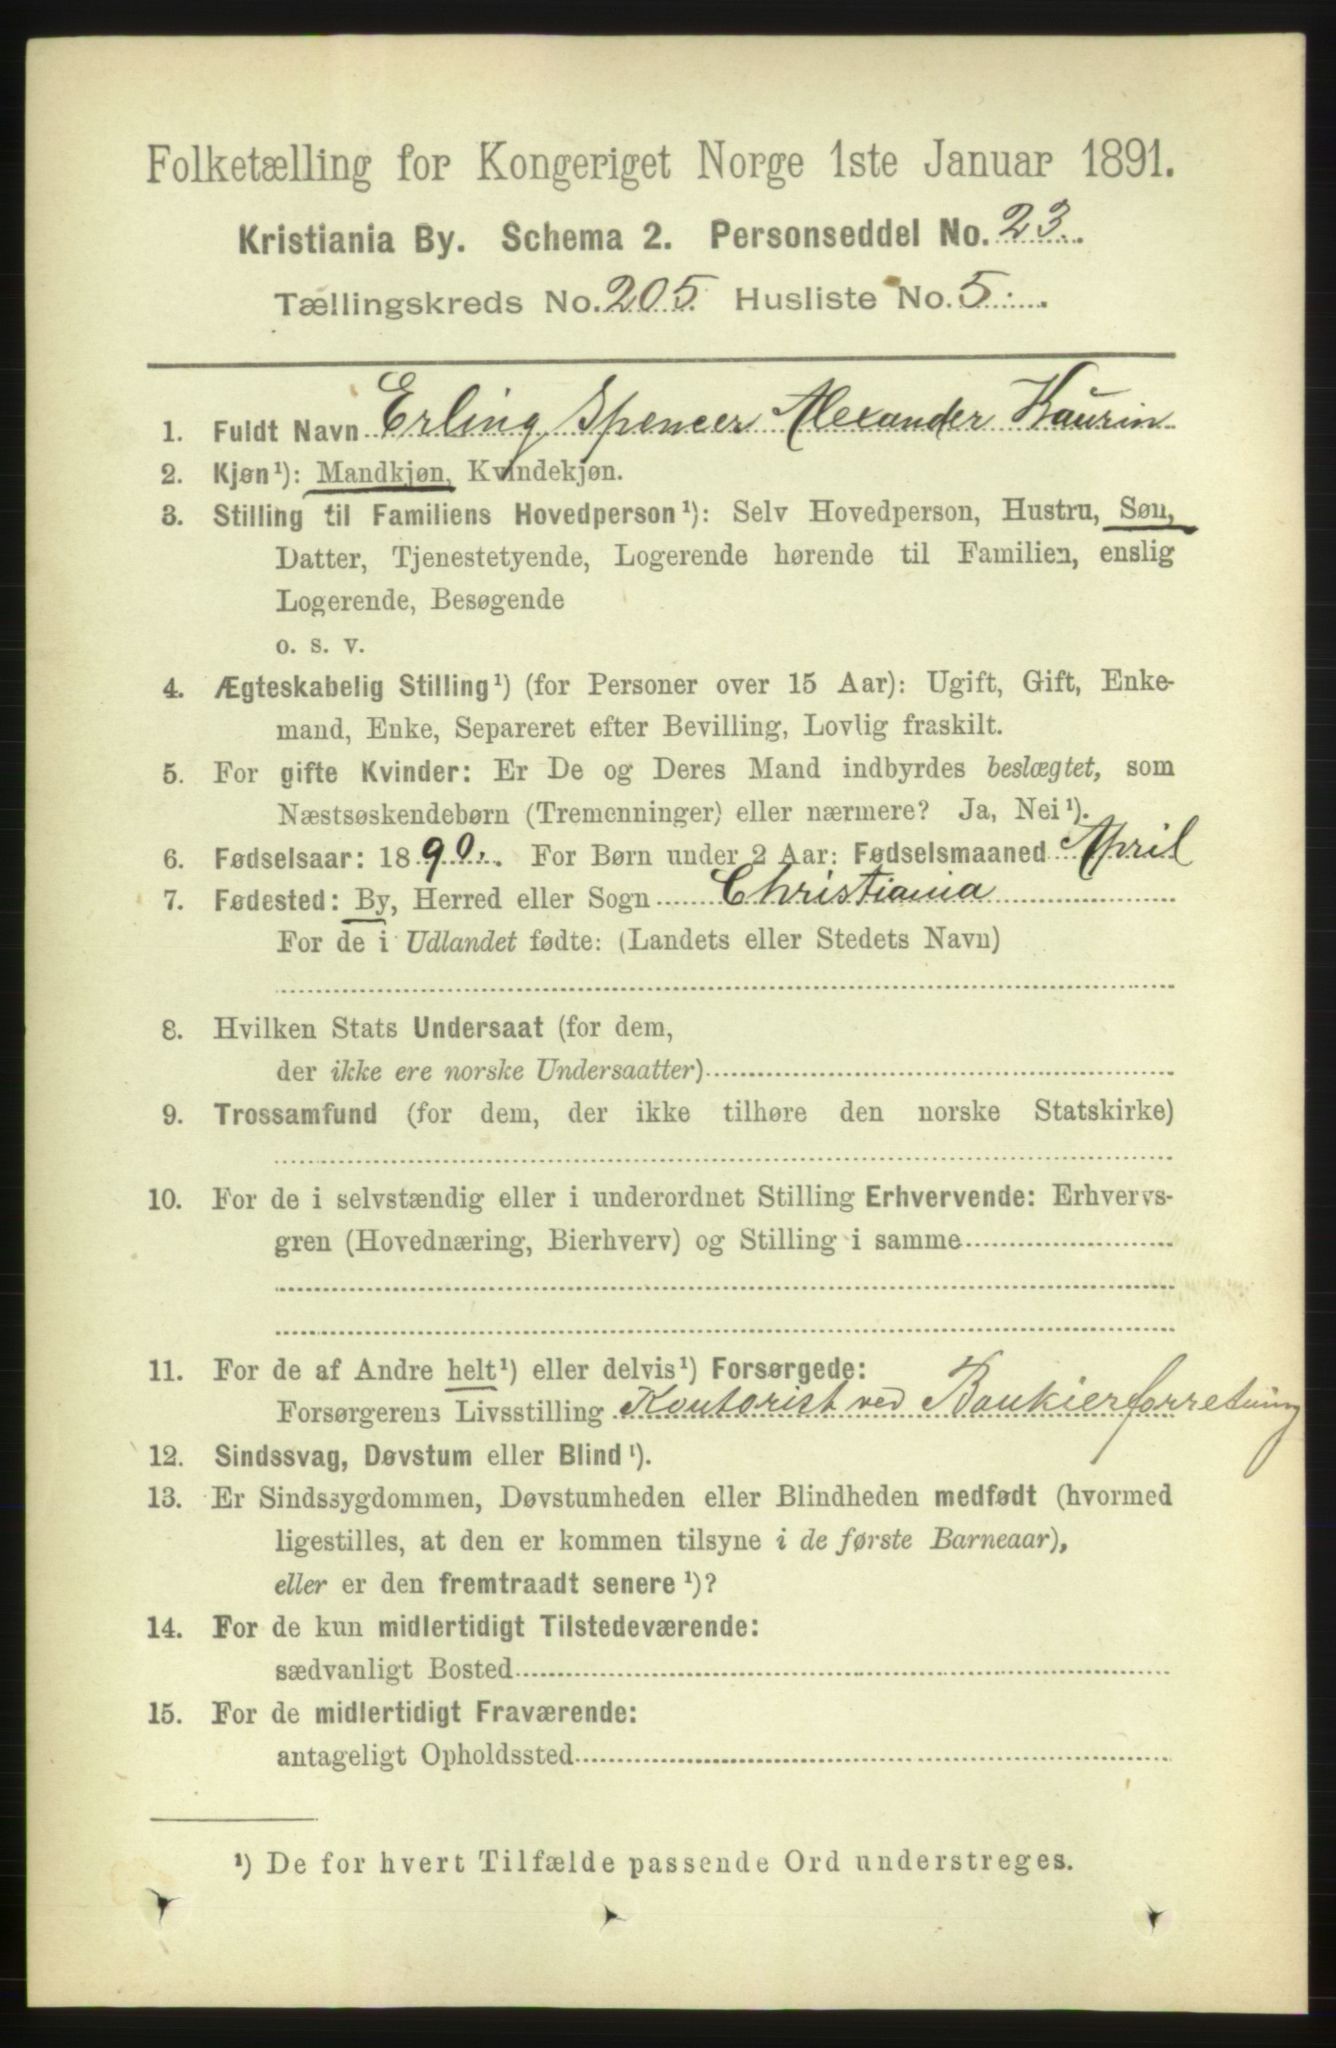 Folketælling for Kongeriget Norge 1ste Januar 1891.
Kristiania By. Schema 2. Personseddel No. 23.
Tællingskreds No. 205. Husliste No. 5.
1. Fuldt Navn Erling Spencer Alexander Kaurin
2. Kjøn¹): Mandkjøn, Kvindekjøn.
3. Stilling til Familiens Hovedperson¹): Selv Hovedperson, Hustru, Søn,
Datter, Tjenestetyende, Logerende hørende til Familien, enslig
Logerende, Besøgende
o. s. v.
4. Ægteskabelig Stilling¹) (for Personer over 15 Aar): Ugift, Gift, Enke-
mand, Enke, Separeret efter Bevilling, Lovlig fraskilt.
5. For gifte Kvinder: Er De og Deres Mand indbyrdes beslægtet, som
Næstsøskendebørn (Tremenninger) eller nærmere? Ja, Nei¹).
6. Fødselsaar: 1890. For Børn under 2 Aar: Fødselsmaaned April
7. Fødested: By, Herred eller Sogn Christiania
For de i Udlandet fødte: (Landets eller Stedets Navn)
8. Hvilken Stats Undersaat (for dem,
der ikke ere norske Undersaatter)
9. Trossamfund (for dem, der ikke tilhøre den norske Statskirke)
10. For de i selvstændig eller i underordnet Stilling Erhvervende: Erhvervs-
gren (Hovednæring, Bierhverv) og Stilling i samme
11. For de af Andre helt¹) eller delvis¹) Forsørgede:
Forsørgerens Livsstilling Kontorist ved Bankierforretning
12. Sindssvag, Døvstum eller Blind¹).
13. Er Sindssygdommen, Døvstumheden eller Blindheden medfødt (hvormed
ligestilles, at den er kommen tilsyne i de første Barneaar),
eller er den fremtraadt senere¹)?
14. For de kun midlertidigt Tilstedeværende:
sædvanligt Bosted
15. For de midlertidigt Fraværende:
antageligt Opholdssted
¹) De for hvert Tilfælde passende Ord understreges.